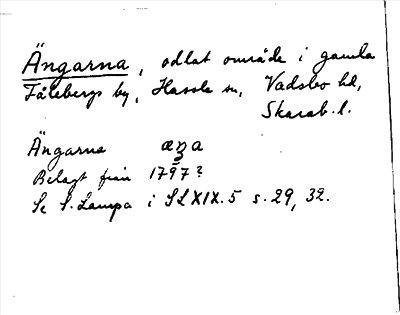 Ängarna, odlat område i gamla
Fålebergs by, Hassle sn, Vadsbo hd,
Skarab. l.
Ängarna æŋa
Belagt från 1797?
Se S. Lampa i SL XIX. 5 s. 29, 32.